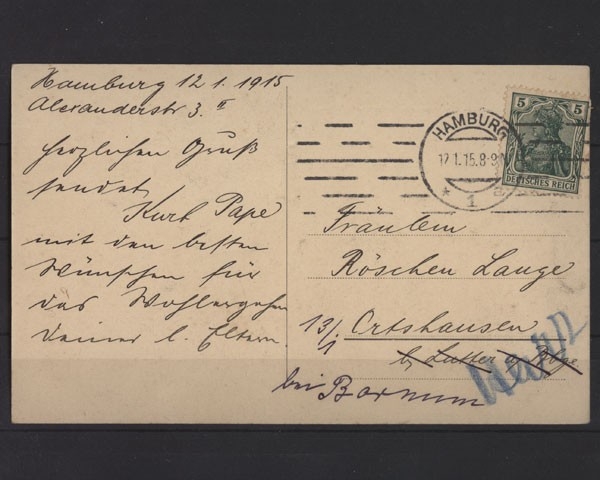 Hamburg 12.1.1915
Alexanderstr 3. II
herzlichen Gruß
sendet
Kurt Pape
mit den besten
Wünschen für
das Wohlergehen
deiner l. Eltern.
HAMBURG
12.1.15.8-9N
* 1
5 5
DEUTSCHES REICH
Fräulein
Röschen Lange
13/1 Ortshausen
b/ Lutter a.
bei Bornum